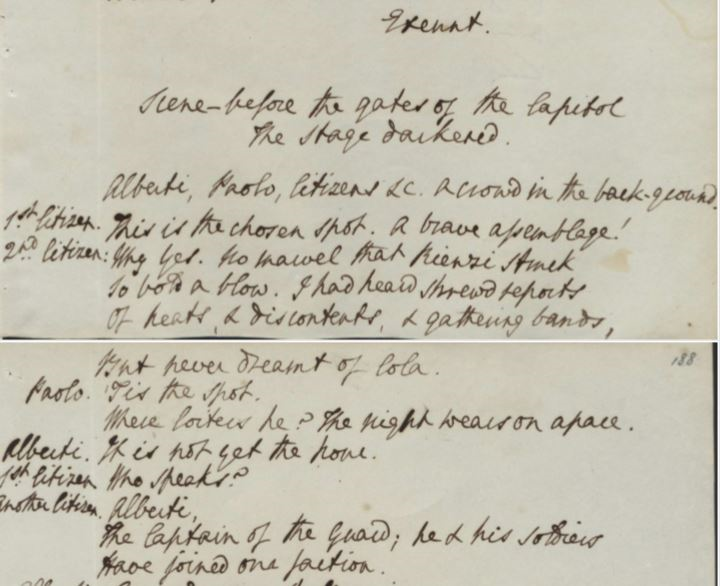 Exeunt.
Scene - before the gates of the Capitol
The Stage darkened.
Alberti, Paolo, Citizens &c. A crowd in the back-ground.
1st Citizen. This is the chosen spot. A brave assemblage!
2nd Citizen: Why yes. No marvel that Rienzi struck
So bold a blow. I had heard shrewd reports
Of heats, & discontents, & gathering bands,
But never dreamt of Cola.
188
Paolo. 'Tis the spot.
Where loiters he? The night wears on apace.
Alberti. It is not yet the hour.
1st Citizen. Who speaks?
Another Citizen. Alberti,
The Captain of the Guard; he & his soldiers
Have joined our faction.